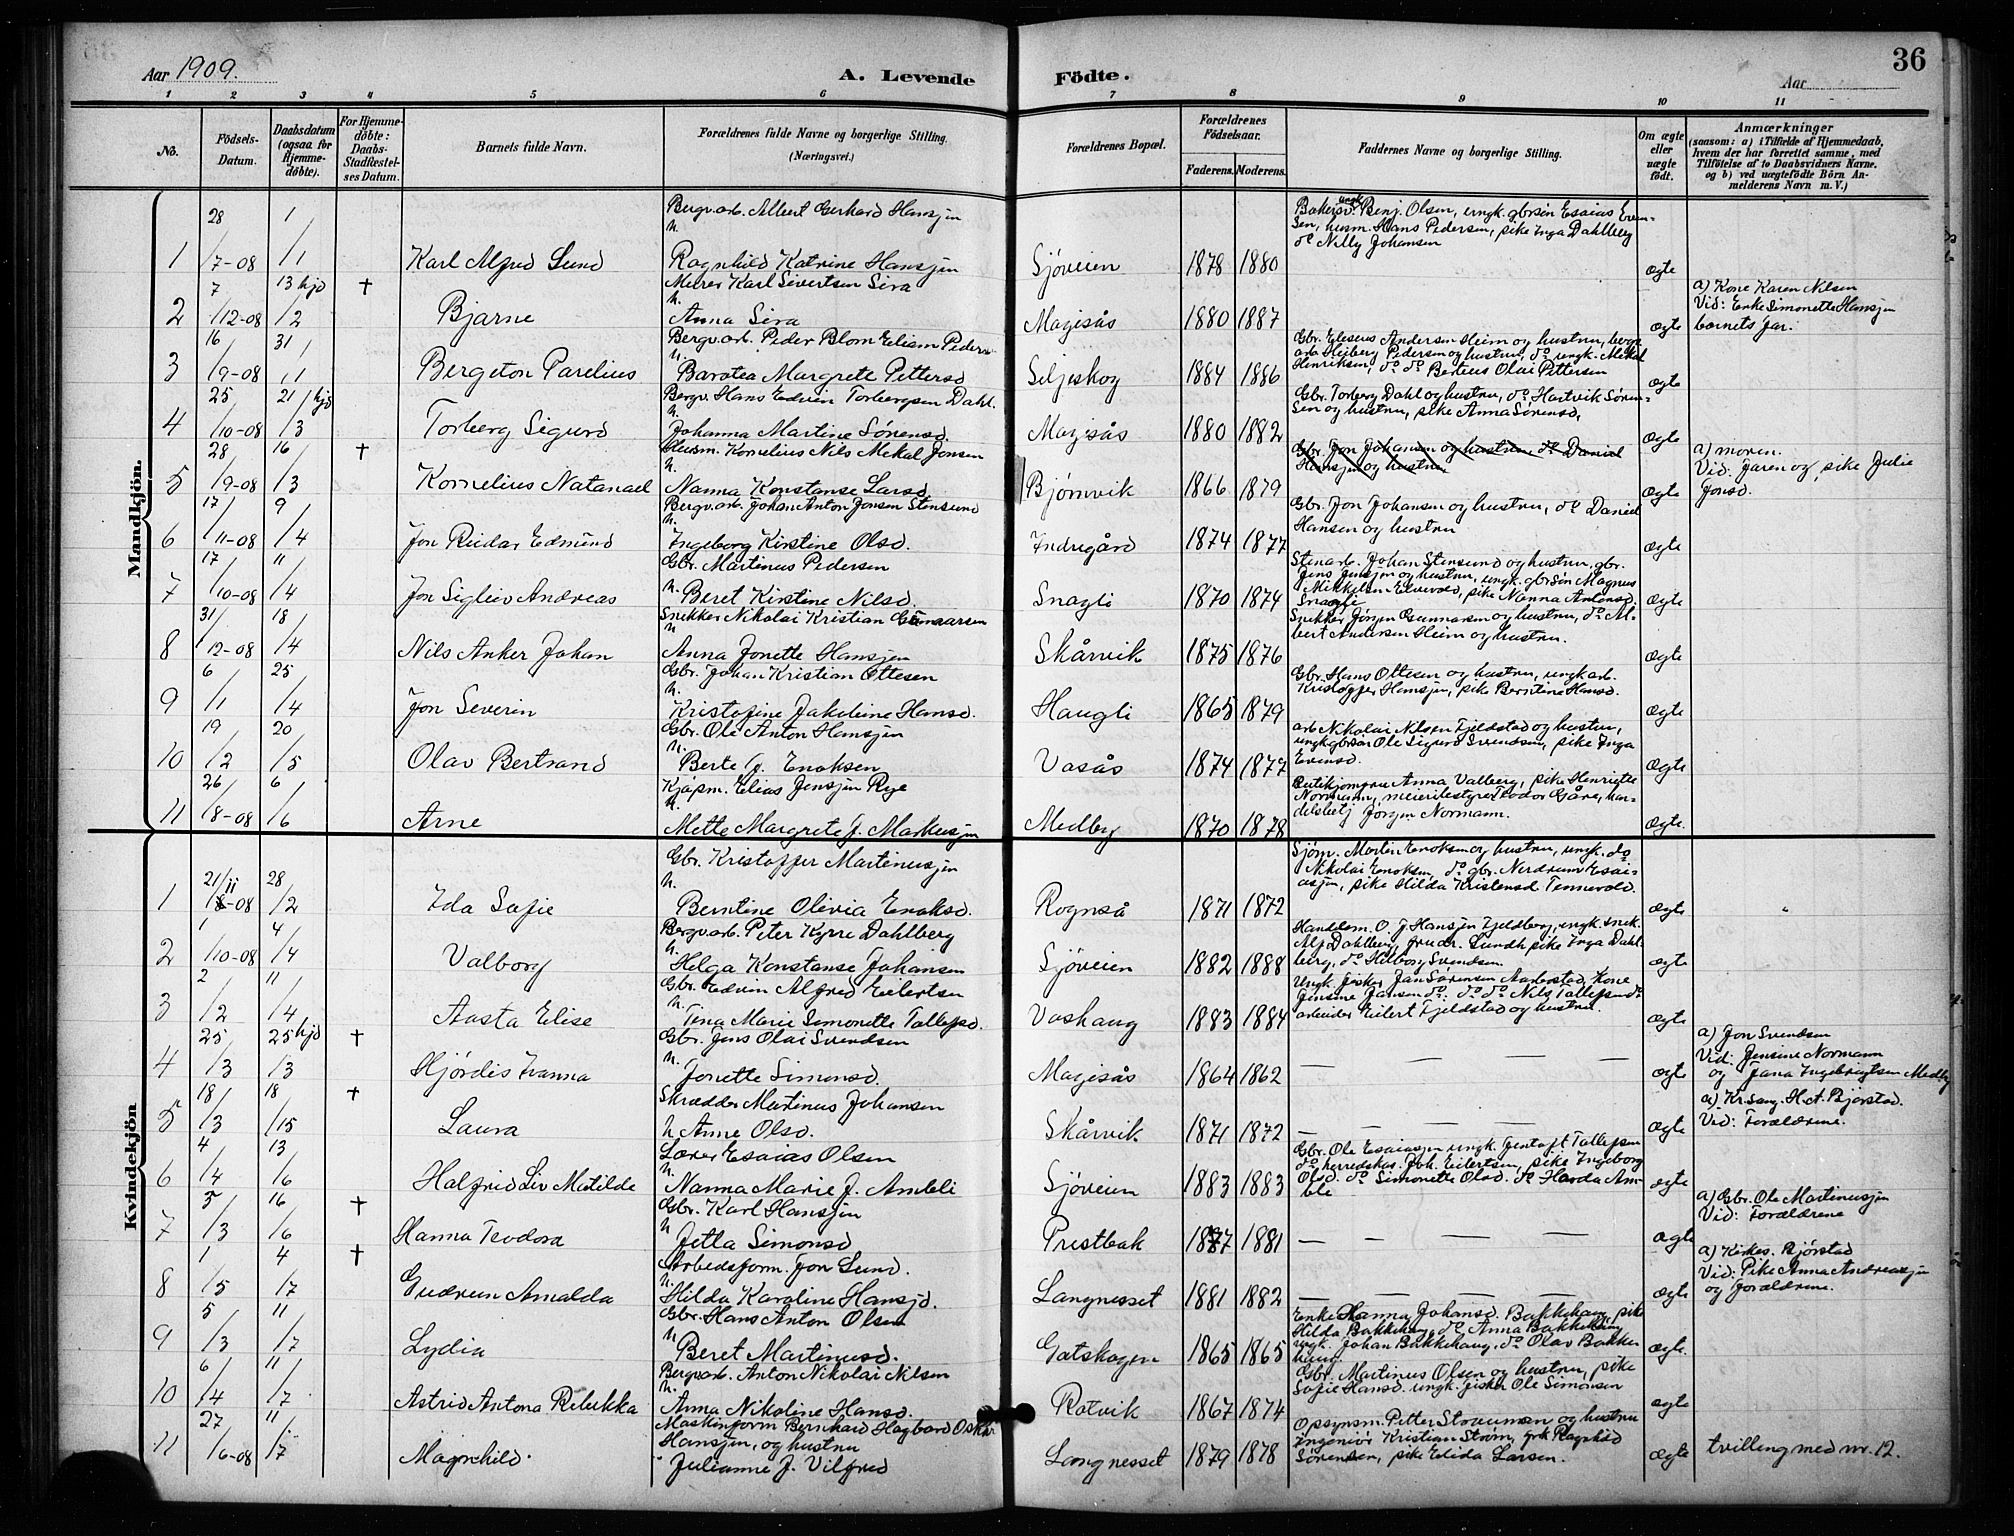 Aar 1909.
A. Levende Födte.
Aar
36
1 2 3 4 5 6 7 8 9 10 11
No.
Födsels-Datum.
Daabsdatum (ogsaa for Hjemmedöbte).
For Hjemmedöbte: Daabs-Stadfæstelses Datum.
Barnets fulde Navn.
Forældrenes fulde Navne og borgerlige Stilling. (Næringsvei.)
Forældrenes Bopæl.
Forældrenes Födselsaar. Faderens. Moderens.
Faddernes Navne og borgerlige Stilling.
Om ægte eller uægte födt.
Anmærkninger (saasom: a) i Tilfælde af Hjemmedaab, hvem der har forrettet samme, med Tilföielse af to Daabsvidners Navne. og b) ved uægtefödte Börn Anmelderens Navn m. V.)
Mandkjön.
1 28/7-08 1/1 Karl Alfred Lund Bergv.arb. Albert Gerhard Hansjen h. Ragnhild Katrine Hansjen Sjöveien 1878 1880 Benj. Olsen, ungk. gbrsön Esaias Evensen, husm. Hans Pedersen, pike Inga Dahlberg do Nilly Johansen ægte
2 7/12-08 13/2 hjd † Bjarne Murer Karl Sivertsen Sira h. Anna Sira Magisås 1880 1887 ægte a) Kone Karen Nilsen Vid: Enke Simonette Hansjen barnets far.
3 16/9-08 31/1 Bergeton Parelius Bergv.arb. Peder Blom Eliam Peders h. Barotea Margrete Petterso Siljeskog 1884 1886 Gbr. Eleseus Andersen Heim og hustru, bergv arb Heiberg Pedersen og hustru, do ungk. Mekal Henriksen, do do Berteus Olai Pettersen ægte
4 25/10-08 21/3 hjd Torberg Sigurd Bergv. Hans Edvin Torbergsen Dahl. h. Johanna Martine Sörensd. Magisås 1880 1882 Gbr. Torberg Dahl og hustru, do Hartvik Sörensen og hustru, pike Anna Sörensd, ægte
5 28/9-08 16/3 † Kornelius Natanael Husm. Kornelius Nils Mekal Jonsen h. Nanna Konstanse Larsd Bjørnvik 1866 1879 Gbr. Jon Johansen og hustru do Daniel Hansjen og hustru ægte a) moren. Vid: faren og pike Julie Jonsd.
6 17/11-08 9/4 Jon Reidar Edmund Bergv.arb. Johan Anton Jonsen Stensund h. Ingeborg Kirstine Olsd. Indregård 1874 1877 Gbr. Jon Johansen og hustru, do Daniel Hansen og hustru ægte
7 17/10-08 11/4 Jon Sigleiv Andreas Gbr. Martinus Pedersen h. Beret Kirstine Nilsd. Snagli 1870 1874 Stenarb. Johan Stensund og hustru, gbr. Jens Jensjen og hustru, ungk. gbrsön Magnus Mikkelsen Elvevold, pike Nanna Antonsd Snagli ægte
8 31/12-08 18/4 Nils Anker Johan Snikker Nikolai Kristian Gunnarsen h. Anna Jonette Hansjen Skårvik 1875 1876 Snikker Jörgen Gunnarsen og hustru, do Albert Andersen Heim og hustru. ægte
9 6/1 25/4 Jon Severin Gbr. Johan Kristian Ottesen h. Kristofine Jakobine Hansd. Haugli 1865 1879 Gbr. Hans Ottesen og hustru, ungk arb. Kristoffer Hansjen, pike Berntine Hansd. ægte
10 19/2 20/5 Olav Bertrand Gbr. Ole Anton Hansjen h. Berte G. Enoksen Vasås 1874 1877 arb Nikolai Nilsen Fjeldstad og hustru, ungk gbrsön Ole Sigurd Svendsen, pike Inga Evensd. ægte
11 26/8-08 6/6 Arne Kjøpm. Elias Jensjen Rye h. Mette Margrete J. Markusjen Medby 1870 1878 Butikjomfru Anna Valberg, pike Henriette Normann, meieribestyrer Teodor Gåre, handelsbetj Jörgen Normann. ægte.
Kvindekjön
1 21/11-08 28/2 Ida Sofie Gbr. Kristoffer Martinusjen h. Berntine Olivia Enoksd. Rognså 1871 1872 Sjöm. Martin Enoksen og hustru, ungk. do Nikolai Enoksen, do gbr. Nerdrum Esaiasjen, pike Hilda Kristensd Tennevold. ægte
2 1/10-08 4/4 Valborg Bergv.arb. Peter Kyrre Dahlberg h. Helga Konstanse Johansen Sjöveien 1882 1888 Handelsm. O. J. Hansjen Fjeldberg, ungk. snik. Alf Dahlberg, frudr. Lundh pike Inga Dahlberg, do Hilborg Svendsen. ægte
3 2/2 11/4 Aasta Elise Gbr. Edvin Alfred Eilertsen h. Tina Marie Simonette Tollefsd. Vashaug 1883 1884 Ungk. fisker Jan Sörensen Aaberstad, Kone Jensine Jansen do: do do Nils Tollefsen do arbeider Eilert Fjeldstad og hustru. ægte
4 25/3 25/3 hjd † Hjördis Ivanna Gbr. Jens Olai Svendsen h. Jonette Simonsd. Magisås 1864 1862 — ægte a) Jon Svendsen Vid: Jensine Normann og Jana Ingebrigtsen Medby
5 18/3 18/15 † Laura Skrædder Martinus Johansen h Anne Olsd. Skårvik 1871 1872 — ægte a) Kr.sang. H. A. Bjørstad. Vid: Forældrene.
6 4/4 13/6 Halfrid Liv Matilde Lærer Esaias Olsen h. Nanna Marie J. Ambli Sjöveien 1883 1883 Gbr. Ole Esaiasjen ungk. Jentoft Tollefsen do herredskas. Joh. Eilertsen, pike Ingeborg Olsd. do Simonette Olsd. do Harda Amble ægte
7 5/3 16/6 † Hanna Teodora Gbr. Karl Hansjen h Jetta Simonsd Prestbak 1877 1881 — ægte a) Gbr. Ole Martinusjen Vid: Forældrene
8 1/5 4/7 † Gudrun Amalda Arbedsform. Jon Lund. h. Hilda Karoline Hansjd. Langnesset 1881 1882 — ægte a) Kirkes. Bjørstad Vid: Pike Anna Andreasjen og forældrene.
9 5/3 11/7 Lydia Gbr. Hans Anton Olsen h Beret Martinusd. Gatskogen 1865 1865 Enke Hanna Johansd. Bakkehaug, pike Hilda Bakkehaug, do Anna Bakkehaug ungk. Johan Bakkehaug, do Olav Bakkehaug. ægte.
10 6/4 11/7 Astrid Antona Rebekka Bergv.arb. Anton Nikolai Nilsen h. Anna Nikoline Hansd. Rotvik 1867 1874 Gbr. Martinus Olsen og hustru, pike Sofie Hansd. ungk. fisker Ole Simonsen ægte
11 27/6-08 11/7 Magnhild Maskinform Bernhard Hagbard Oskar Hansjen, og hustru Julianne J. Vilfred Langnesset 1879 1878 Opsynsm. Petter Straumsen og hustru ingeniör Kristian Ström, frk Ragnhild Sörensen, pike Elida Larsen. ægte tvilling med nr. 12.